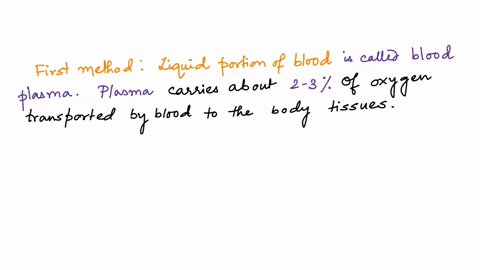 First method: Liquid portion of blood is called blood
plasma. Plasma carries about 2-3% of oxygen
transported by blood to the body tissues.